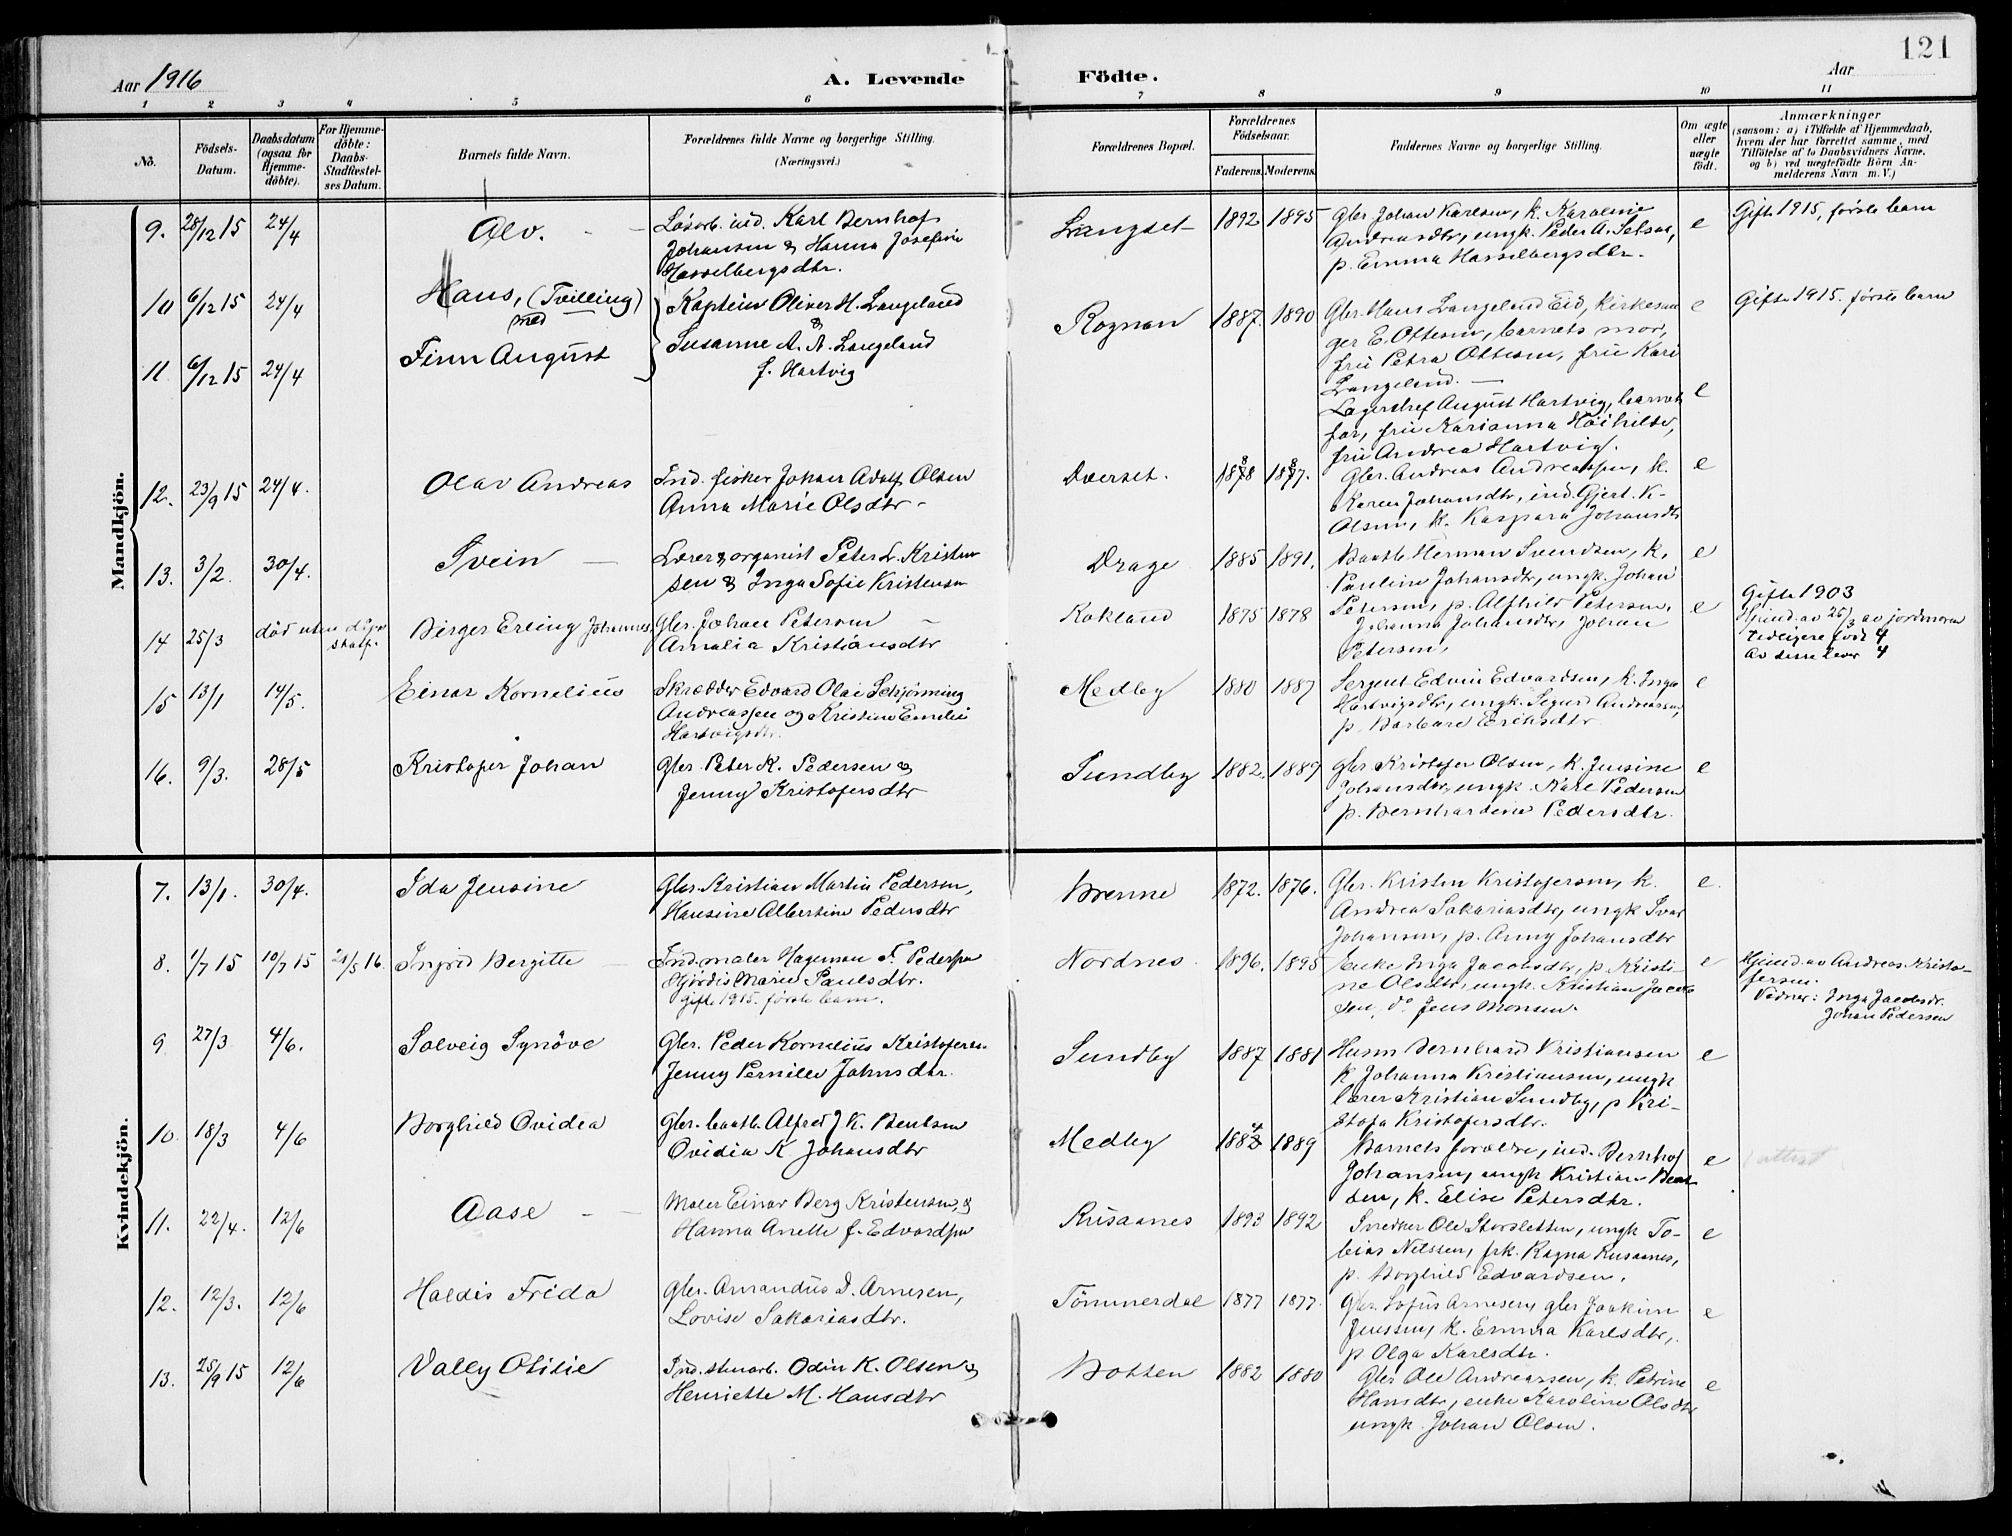 121
Aar 1916
A. Levende Födte.
Aar
1 2 3 4 5 6 7 8 9 10 11
No.
Födsels-
Datum.
Daabsdatum
(ogsaa for
Hjemme-
döbte).
For Hjemme-
döbte:
Daabs-
Stadfæstel-
ses Datum.
Barnets fulde Navn.
Forældrenes fulde Navne og borgerlige Stilling.
(Næringsvei.)
Forældrenes Bopæl.
Forældrenes
Födselsaar.
Faderens. Moderens.
Faddernes Navne og borgerlige Stilling.
Om ægte
eller
uægte
født.
Anmærkninger
(saasom: a) i Tilfælde af Hjemmedaab,
hvem der har forrettet samme, med
Tilföielse af to Daabsvidners Navne,
og b) ved uægtefödte Börn An-
melderens Navn m. V.)
Mandkjön.
9. 28/12 15 24/4 Alv.
Løsarb. ind. Karl Bernhof
Johansen & Hanna Josefine
Hasselbergsdtr.
Langset 1892 1895
Gbr. Johan Karlsen, k. Karoline
Andreasdtr, ungk. Peder A. Setsaa,
p. Emma Hasselbergsdtr.
e
Gifte 1915, første barn
10 6/12 15 24/4 Hans, (Tvilling)
med
11. 6/12 15 24/4 Finn August
Kaptein Oliver H. Langeland
&
Susanne A. A. Langeland
f. Hartvig
Rognan 1887. 1890
Gbr. Hans Langeland Eid, kirkesan
ger E. Ottesen, barnets mor,
fru Petra Ottesen, fru Kari
Langeland.
e
Lagerchef August Hartvig, barnets
far, fru Karianna Høiholter,
fru Andrea Hartvig.
e
Gifte 1915. første barn
12. 23/9 15 24/4. Olav Andreas
Ind. fisker Johan Adolf Olsen
Anna Marie Olsdtr
Dverset. 1888 1887.
Gbr. Andreas Andreassen, k.
Karen Johansdtr, ind. Gjert. K.
Olsen, k. Kaspara Johansdtr
e
13. 3/2. 30/4. Svein
Lærer & organist Peter L. Kristen
sen & Inga Sofie Kristensen
Drage 1885 1891.
Baatb. Herman Svendsen, k.
Pauline Johansdtr, ungk. Johan
Petersen, p. Alfhild Petersen.
e
14 25/3 død uten dåps
stadf. Birger Erling Johannes.
Gbr. Johan Petersen
Amalia Kristiansdtr
Rokland 1875 1878
Johanna Johansdtr, Johan
Petersen,
e
Gifte 1903
Hjemd. av 25/3 av jordmoren
tidligere født 4
Av disse lever 4
15 13/1 14/5. Einar Kornelius
Skrædder Edvard Olai Schjønning
Andreassen og Kristine Emelie
Hartvigsdtr.
Medby 1880 1887
Sergent Edvin Edvardsen, k. Inga
Hartvigsdtr, ungk. Sigurd Andreassen,
p. Barbara Eriksdtr.
e
16. 9/3. 28/5 Kristofer Johan
Gbr. Peter K. Pedersen &
Jenny Kristofersdtr
Sundby 1882. 1889
Gbr Kristofer Olsen, k. Jensine
Johansdtr, ungk. Kåre Pedersen
p. Bernhardine Pedersdtr.
e
Kvindekjön.
7. 13/1. 30/4. Ida Jensine
Gbr. Kristian Martin Pedersen,
Hansine Albertine Pedersdtr
Brenne 1872. 1876.
Gbr. Kristen Kristofersen, k.
Andrea Sakariasdtr, ungk Ivar
Johansen, p. Anny Johansdtr
e.
8. 1/7 15 10/7 15 21/5 16. Ingrid Bergitte
Ind. maler Hageman F. Pedersen
Hjørdis Marie Paulsdtr.
Gifte 1915. første barn.
Nordnes. 1896. 1895
Enke Inga Jacobsdtr, p. Kristi-
ne Olsdtr, ungk. Kristian Jacob
sen, do Jens Monsen.
e
Hjemd. av Andreas Kristo-
fersen.
Vidner: Inga Jacobsdr.
Johan Pedersen
9 27/3 4/6. Solveig Synøve
Gbr. Peder Kornelius Kristofersen
Jenny Pernille Johnsdtr.
Sundby 1887 1881
Husm Bernhard Kristiansen
k. Johanna Kristiansen, ungk
lærer Kristian Sundby, p Kri-
stofa Kristofersdtr.
e
10. 18/3 4/6 Borghild Ovidea
Gbr. baatb. Alfred J. K. Bentsen
Ovidia K. Johansdtr
Medby 1884 1889
Barnets forældre, ind. Bernhof
Johansen, ungk Kristian Bent
sen, k. Elise Petersdtr.
e
attest
11. 22/4. 12/6 Aase
Maler Einar Berg Kristensen, &
Hanna Anette f. Edvardsen
Rusaanes 1893 1892
Snedker Ole Storsletten, ungk To-
bias Nilssen, frk. Ragna Rusaanes,
p. Borghild Edvardsen.
e
12. 12/3. 12/6 Haldis Frida
Gbr. Amandus D. Arnesen,
Lovise Sakariasdtr.
Tømmerdal 1877 1877.
Gbr. Sofus Arnesen, gbr Joakim
Jenssen, k. Emma Karlsdtr,
p. Olga Karlsdtr.
e
13. 25/9 15 12/6 Vally Otilie
Ind. stenarb. Odin K. Olsen &
Henriette M. Hansdtr
Botten 1882 1880
Gbr. Ole Andreassen, k. Petrine
Hansdtr, enke Karoline Olsdtr
ungk. Johan Olsen.
e